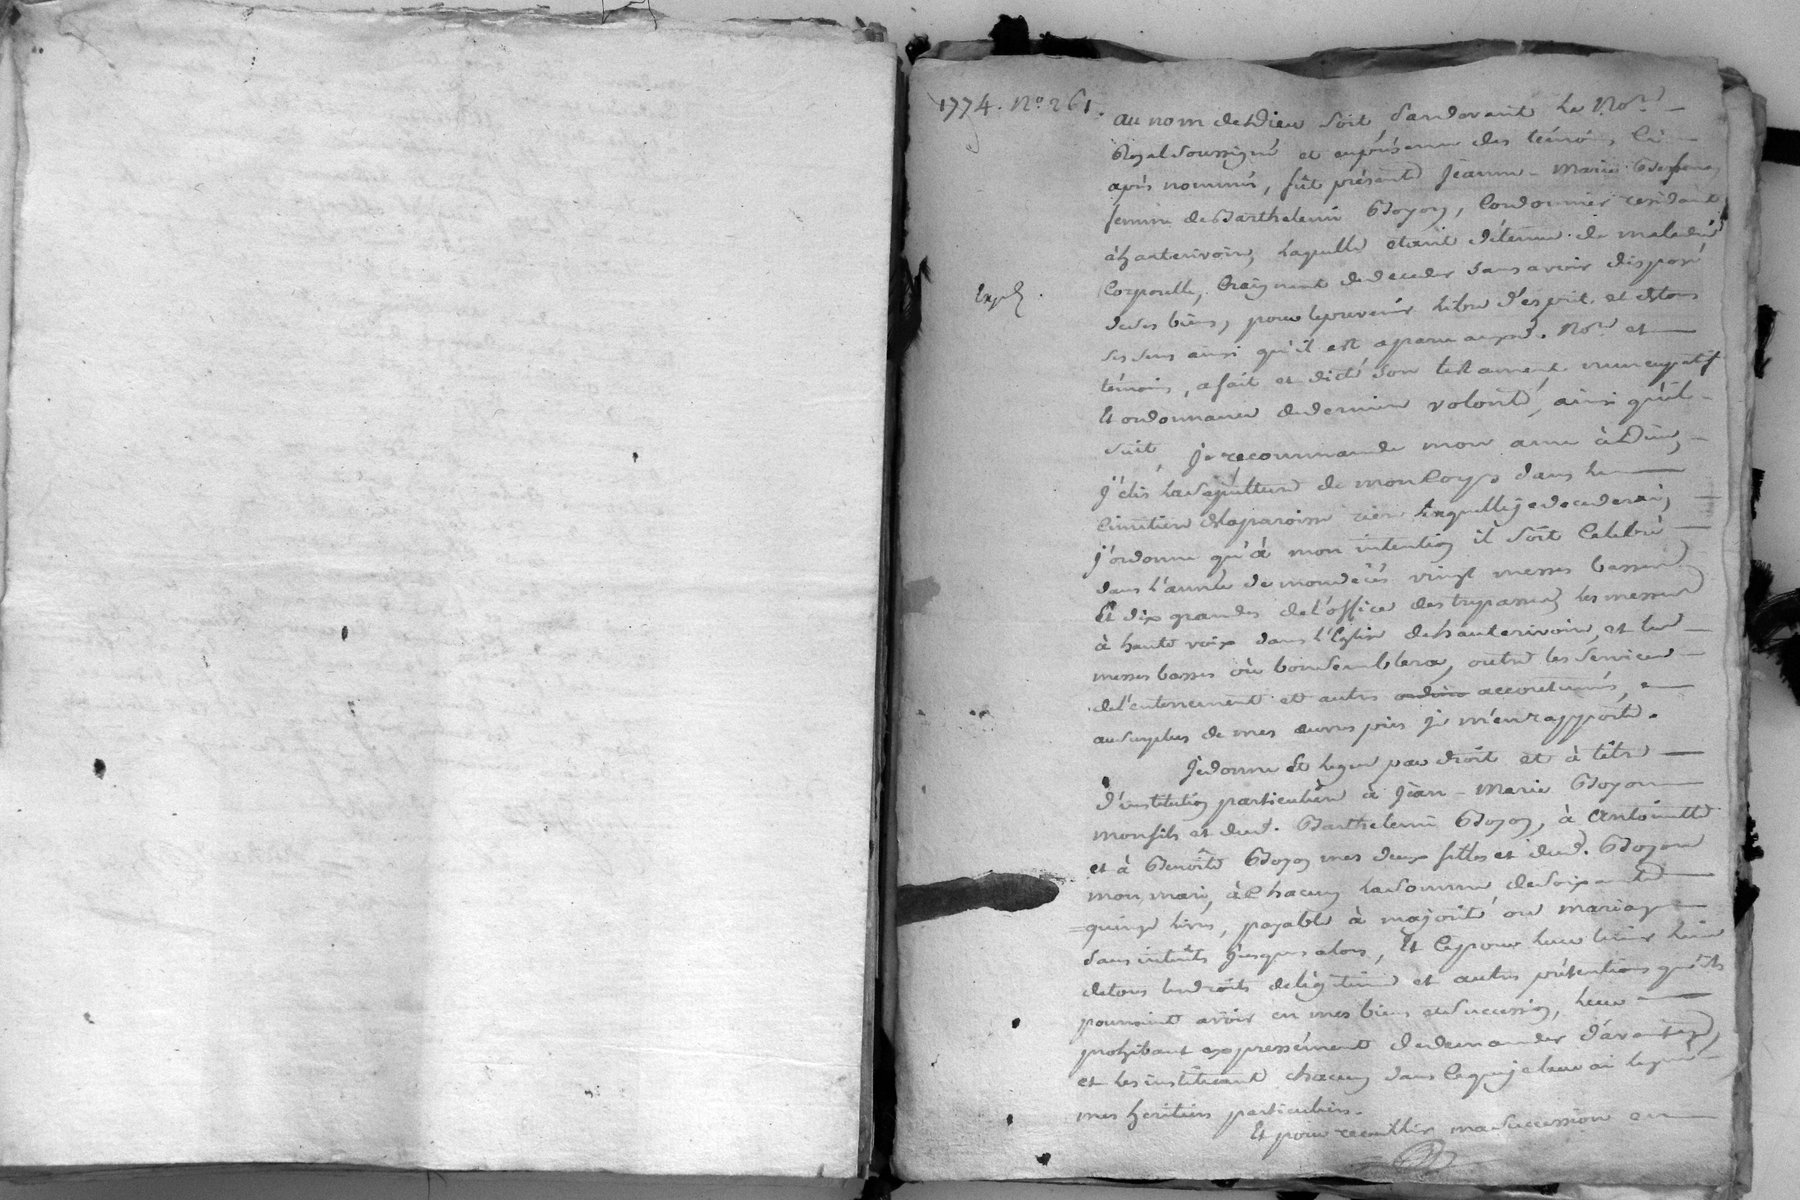 1774. N.º 261.
au nom de Dieu soit pardevant le No.re
Royal soussigné et en présence des témoins ci
après nommés, fût présente Jeanne-Marie
femme de Barthelemi Boyon, Cordonnier résidant
à hauterivoire, laquelle etant détenue de maladie
Corporelle, Craignant de deceder sans avoir disposé
de ses biens, pour le prevenir libre d'esprit et de tous
ses sens ainsi qu'il est aparu auxd. No.re et
témoins, a fait et dicté son testament nuncupatif
Et ordonnance de derniere volonté, ainsi qu'il
suit, je recommande mon ame à Dieu,
Expé.
j'élis la sépulture de mon Corps dans le
Cimetiere de la paroisse rière laquelle je decederai,
j'ordonne qu'à mon intention il soit Celebré
dans l'année de mon décès vingt messes basses
Et dix grandes de l'office des trepassés, les messes
à haute voix dans l'Eglise de hauterivoire, et les
messes basses où bon semblera, outre les services
de l'enterrement et autres accoutumés,
au surplus de mes œuvres pies je m'en rapporte.
Je donne Et legue par droit et à titre
d'institution particulière à Jean-Marie Boyon
mon fils et dud. Barthelemi Boyon, à Antoinette
et à Benoîte Boyon mes deux filles et dud. Boyon
mon mari, à Chacun la somme de soixante
quinze livres, payable à majorité ou mariage
sans intérêts jusques alors, Et Ce pour leur tenir lieu
de tous les droits de légitime et autres prétentions qu'ils
pourroient avoir en mes biens et succession, leur
prohibant expressément de demander d'avantage,
et les instituant chacun dans Ce que je leur ai legué
mes heritiers particuliers.
Et pour recueillir ma succession en